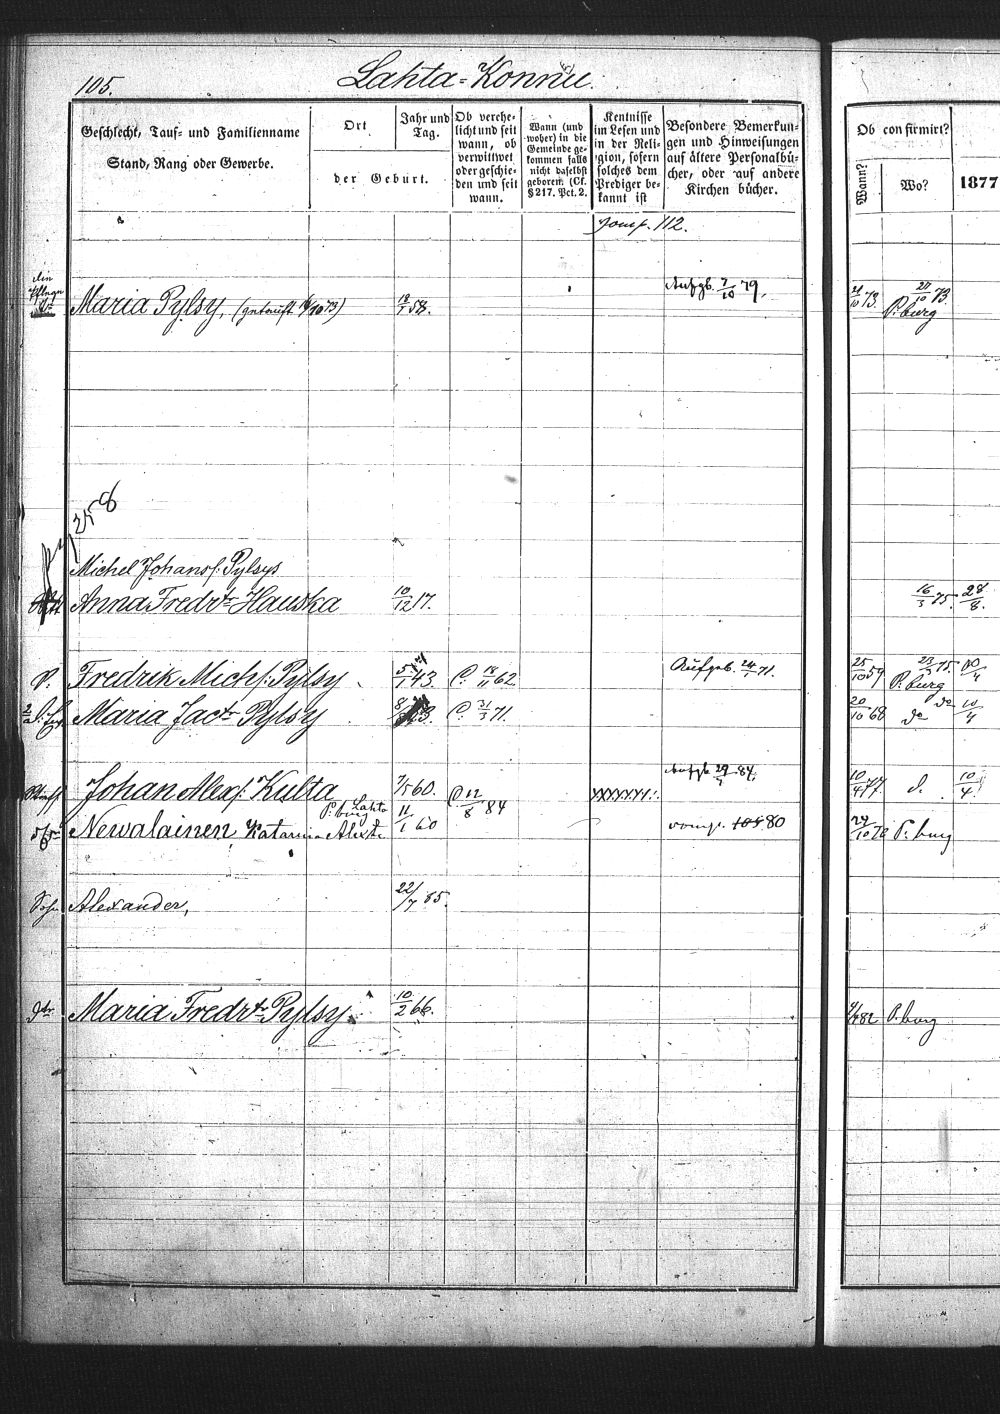 105. Lahta-Konnu.
Geschlecht, Tauf- und Familienname
Stand, Rang oder Gewerbe.
Ort
der Geburt.
Jahr und Tag.
Ob verehe-
licht und seit
wann, ob
verwittwet
oder geschie-
den und seit
wann.
Wann (und
woher) in die
Gemeinde ge-
kommen falls
nicht daselbst
geboren. (Cf.
§ 217. Pct. 2.
Kentnisse
im Lesen und
in der Reli-
gion, sofern
solches dem
Prediger be-
kannt ist
Besondere Bemerkun-
gen und Hinweisungen
auf ältere Personalbü-
cher, oder auf andere
Kirchen bücher.
Ob con firmirt?
Wann?
Wo?
1877
112.
Maria Pylsy, (getauft 14/10 73) 18/7 58. Aufgb. 7/10 79. 21/10 73. 21/10 73. P. burg
258
Michel Johans. Pylsys
Anna Fredr. Hauska 10/12 17. 16/3 75. 28/8.
Fredrik Mich. Pylsy 43. C. 18/11 62 Aufgeb. 24/1 71. 25/10 59 23/3 75. P. burg
Maria Jac. Pylsy C. 31/3 71. 20/10 68 do do 10/4
Johan Alex. Kulta 7/5 60. C. 12/8 84 Aufgb. 29/7 84. 10/4 77 d. 10/4.
P. burg Lahta
Newalainen Katarina Alex. 11/1 60 80 24/10 P. burg
Sohn Alexander, 22/7 85.
Maria Fredr. Pylsy 10/2 66. 82 P. burg